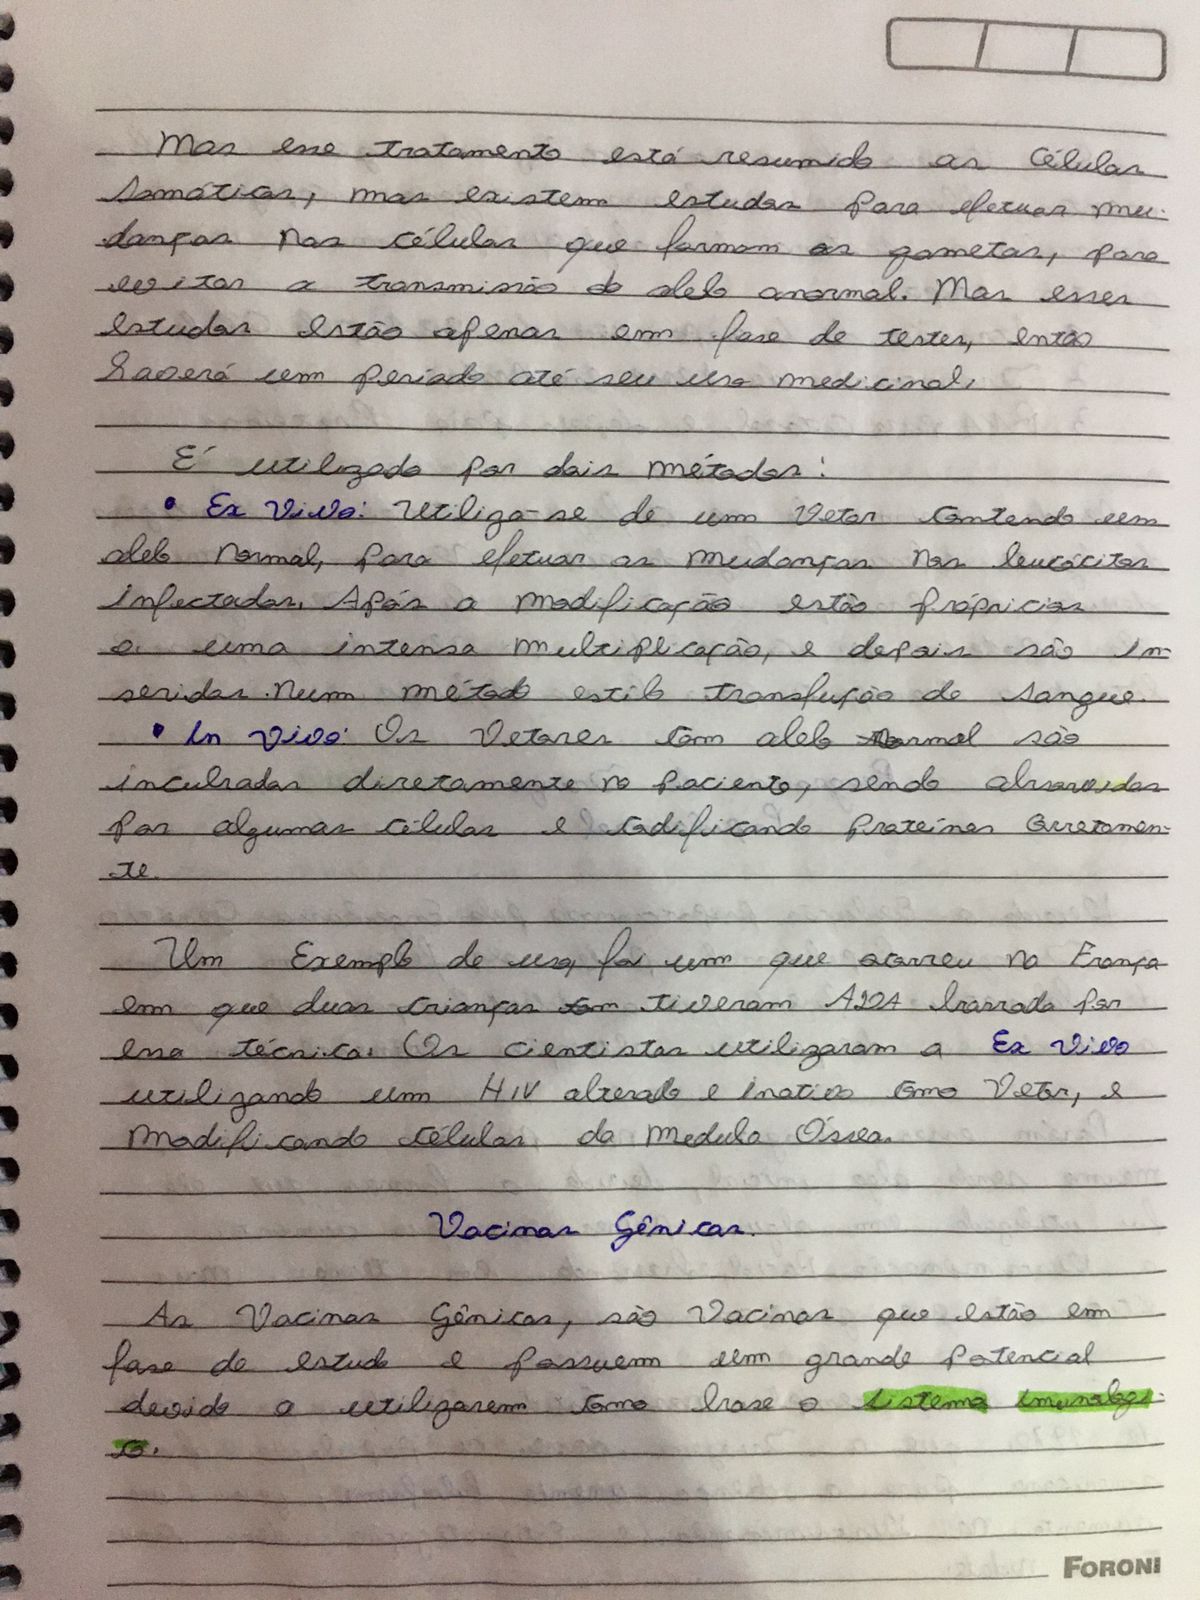 Mas esse tratamento está resumido as Células
Somáticas, mas existem estudos para efetuar mu-
danças nas células que formam os gametas, para
evitar a transmissão do alelo anormal. Mas esses
estudos estão apenas em fase de testes, então
haverá um período até seu uso medicinal.
É utilizado por dois métodos:
• Ex Vivo: Utiliza-se de um Vetor contendo um
alelo normal, para efetuar as mudanças nos leucócitos
infectados. Após a modificação estão própricios
a uma intensa multiplicação, e depois são in-
seridos num método estilo transfução de sangue.
• In Vivo: Os Vetores com alelo normal são
inculbados diretamente no paciente, sendo absorvidos
por algumas células e codificando proteínas corretamen-
te.
Um Exemplo de uso, foi um que ocorreu na França
em que duas crianças tiveram barrada por
essa técnica. Os cientistas utilizaram a Ex Vivo
utilizando um HIV alterado e inativo como Vetor, e
modificando células da Medula Óssea.
Vacinas Gênicas.
As Vacinas Gênicas, são Vacinas que estão em
fase de estudo e possuem um grande potencial
devido a utilizarem como base o sistema imunológi-
co.
FORONI